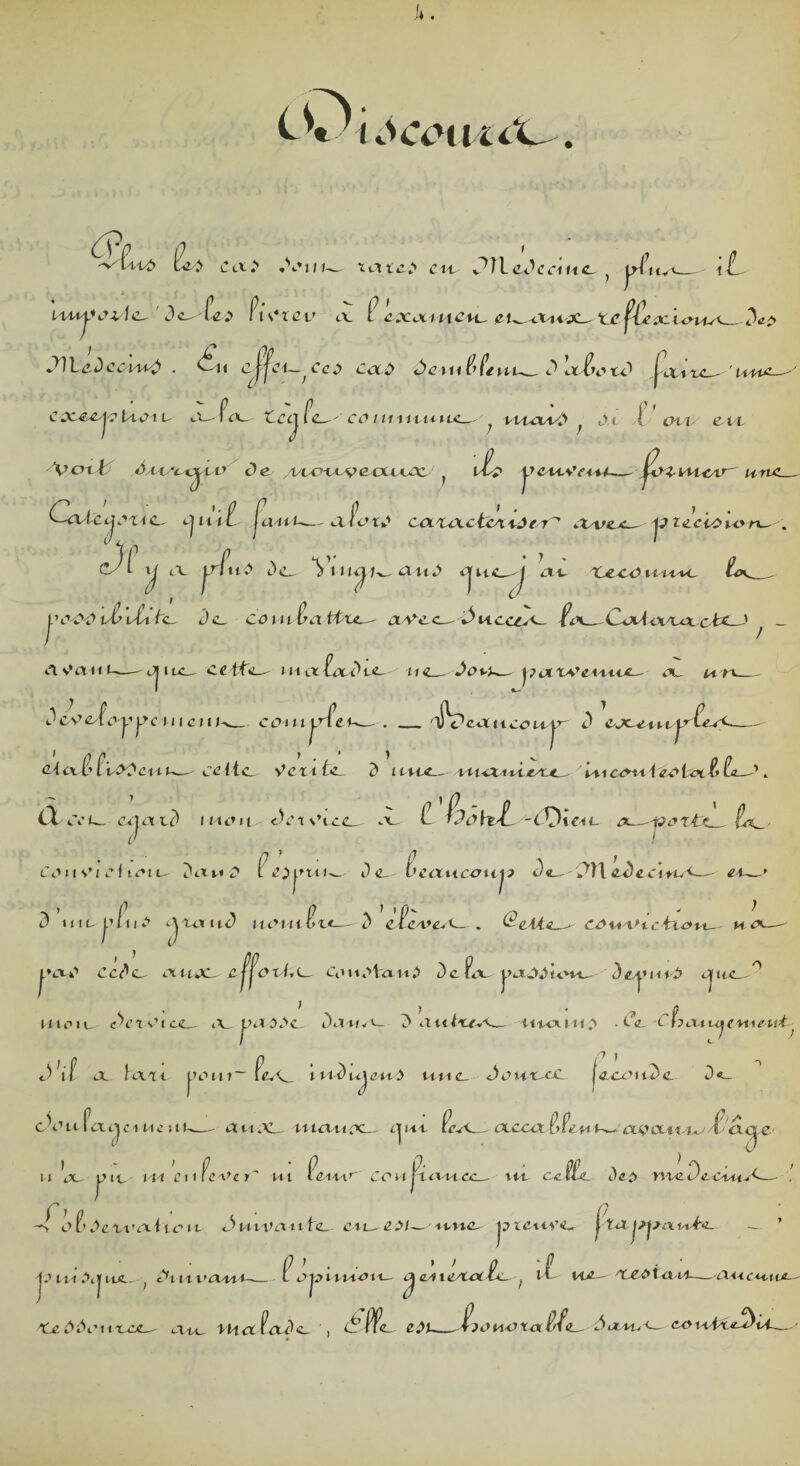 4.
Discours.
Plus les cas sont rares en Medecine, plus il
importe de les livrer à l'examen et aux reflexions des
Medecins. En effet, ces cas semblent d'abord faire une
exception à la regle commune, mais, si l'on en
voit surgir de nouveaux, ils peuvent former une
Categorie qu'il faut alors caractériser avec précision.
Il y a plus de Vingt ans que j'ai reconnu la
possibilité de combattre avec succès la Cataracte,
avant que cette maladie ne soit parvenue à un
développement complet. — Beaucoup d'exemples
établissent cette vérité d'une manière incontestable.
A cet egard mon service à l'hôtel-Dieu a porté la
conviction dans l'esprit de beaucoup de Medecins et
d'un plus grand nombre d'élèves. Cette conviction n'a
pas cédé aux efforts constans de la passion depuis que
mon service a passé dans d'autres mains. Ce changement
s'il a tari pour les indigens une source feconde de
soulagement aux maux qui les accablent avant l'âge
n'a pu m'enlever ni leur confiance ni celle des medecins.
L'observation suivante en est une preuve frappante —
puisque, suivant l'opinion générale, il ne restait aucune
ressource au malade, Elle est honorable sans contredit